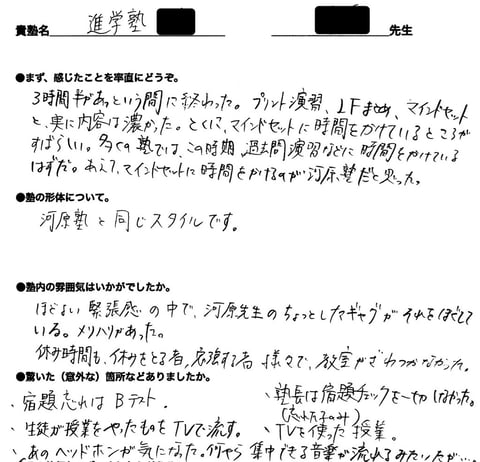 貴塾名 進学塾 先生
●まず、感じたことを率直にどうぞ。
3時間半があっという間に終わった。プリント演習、LFまとめ、マインドセット
と、実に内容は濃かった。とくに、マインドセットに時間をかけているところが
すばらしい。多くの塾では、この時期、過去問演習などに時間をかけている
はずだ。あえて、マインドセットに時間をかけるのが河原塾だと思った。
●塾の形体について。
河原塾と同じスタイルです。
●塾内の雰囲気はいかがでしたか。
ほどよい緊張感の中で、河原先生のちょっとしたギャグがそれをほぐして
いる。メリハリがあった。
休み時間も、休みをとる者、勉強する者様々で、教室がざわつかなかった。
●驚いた（意外な）箇所などありましたか。
、宿題忘れはBテスト。 、塾長は宿題チェックを一切しなかった。
（忘れた子のみ）
、生徒が授業をやったものをTVで流す。 、TVを使った授業。
、あのヘッドホンが気になった。何やら集中できる音楽が流れるみたいだが…